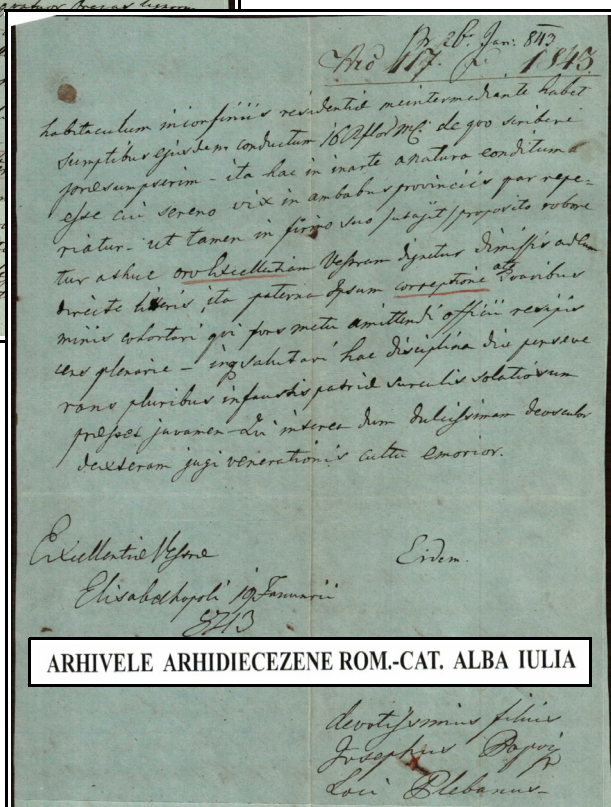 Pr. 26. Jan: 843
Nro 417. 1843
habitaculum in confiniis residentiæ me intermediante habet
sumptibus ejusdem conductum 16 Rflor Mć de quo scribere
præsumpserim - ita hac in in arte a natura conditum
esse cui sereno vix in ambabus provinciis par repe=
riatur - ut tamen in firmo suo proposito robore
tur adhuc oro Excellentiam Vestram dignetur dimissis ad eum
directe literis, ita paterna ipsum correptione atq
minis cohortari qui fors metu amittendi officii resipis
cens plenarie - in salutari hac disciplina die perseve
rans pluribus infaustis patriæ surculis solatiosum
præsset juvamen - Qui interea dum dulcissimam deosculor
dexteram jugi venerationis cultu emorior.
Excellentiæ Vestræ
Eidem.
Elisabethopoli 19 Januarii
843
ARHIVELE ARHIDIECEZENE ROM.-CAT. ALBA IULIA
devotissimus filius
Josephus
Loci Plebanus